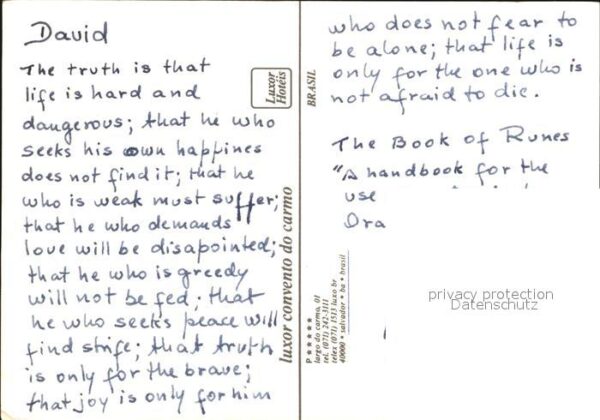 David
The truth is that
life is hard and
dangerous; that he who
seeks his own happines
does not find it; that he
who is weak must suffer;
that he who demands
love will be disapointed;
that he who is greedy
will not be fed. that
he who seeks peace will
find strife; that truth
is only for the brave;
that joy is only for him
Luxor
Hotéis
BRASIL
luxor convento do carmo
P ★★★★★
largo do carmo, 01
tel. (071) 242-3111
telex (071) 1513 luxo br
40000 • salvador • ba • brasil
who does not fear to
be alone; that life is
only for the one who is
not afraid to die.
The Book of Runes
"A handbook for the
use
Ora
privacy protection
Datenschutz